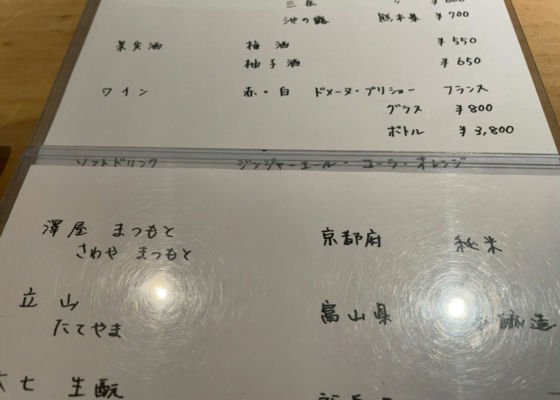 三岳 〃 ¥600
池の露 熊本県 ¥700
果実酒 梅酒 ¥550
柚子酒 ¥650
ワイン 赤・白 ドメーヌ・ブリショー フランス
グラス ¥800
ボトル ¥3,800
ソフトドリンク ジンジャーエール・コーラ・オレンジ
澤屋 まつもと 京都府 純米
さわや まつもと
立山 富山県 醸造
たてやま
大七 生酛